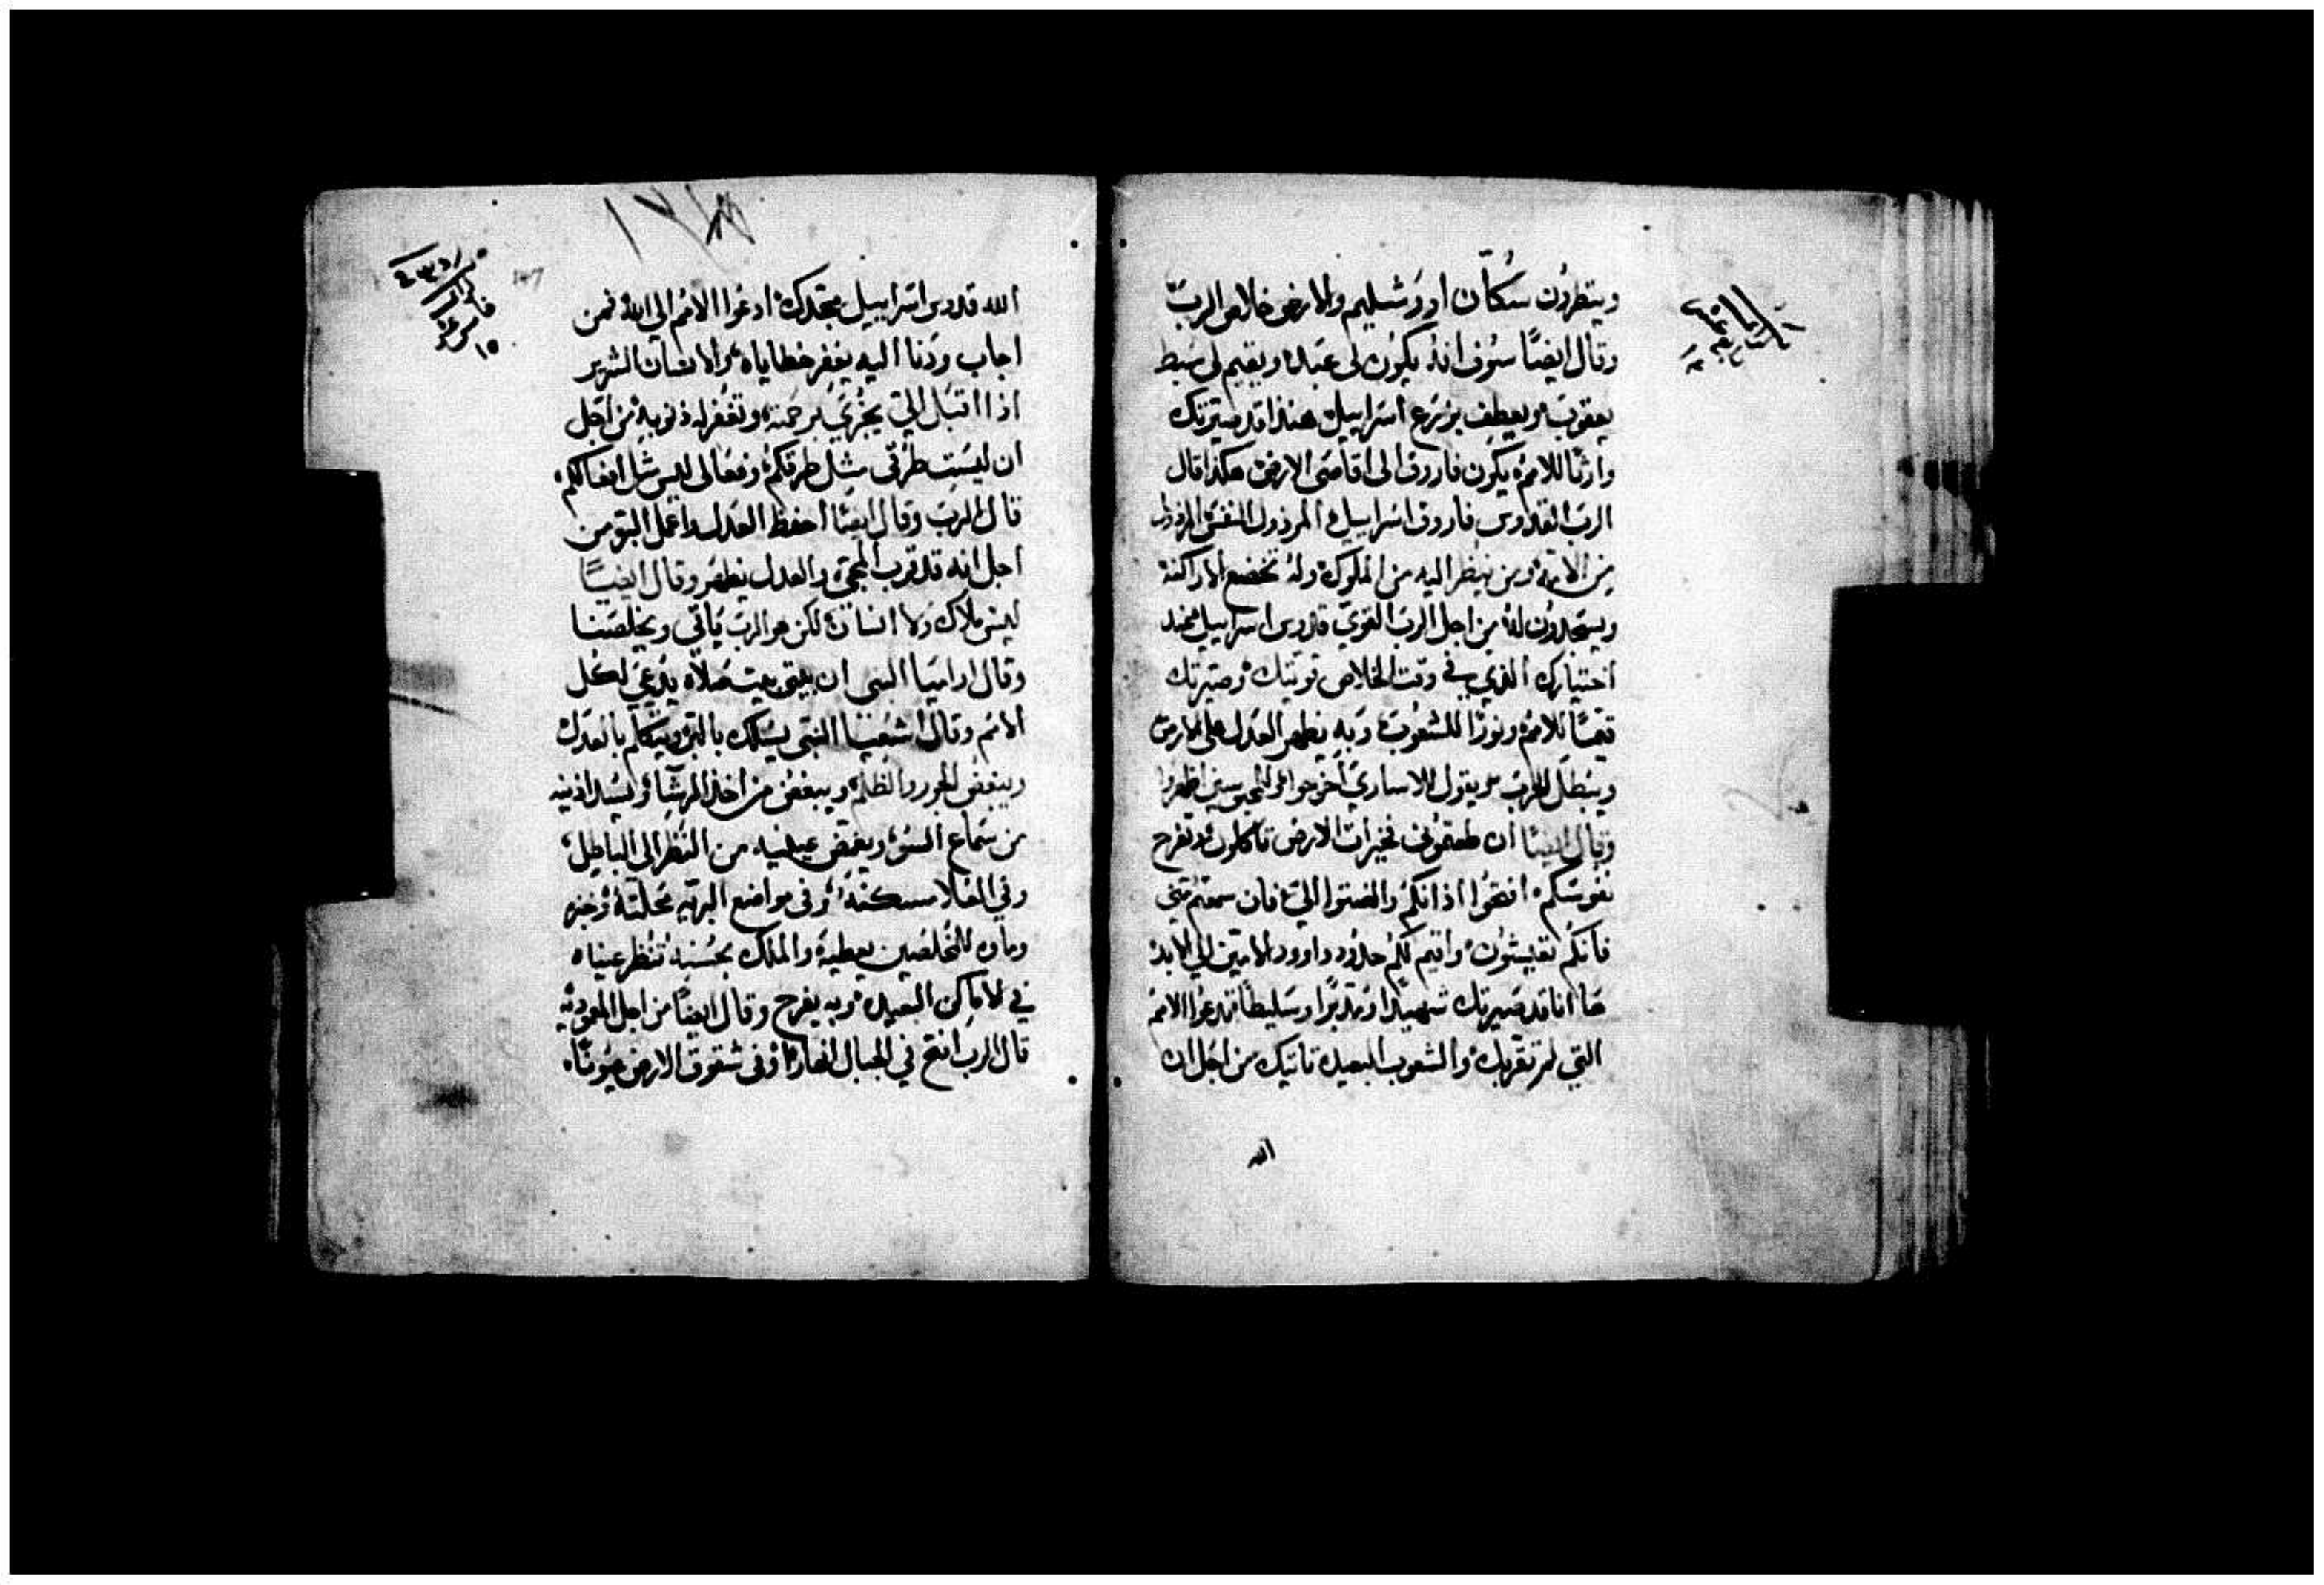 وينتظرون سكان اورشليم والارض خلاص الرب
وقال ايضًا سوف انه يكون لي عبدا ويقيم لي سبط
يعقوب ويعطف بزرع اسراييل هنذا قد صيرتك
وارثًا للامم يكون فاروق الى اقاصى الارض هكذا قال
الرب القدوس فاروق اسراييل المرذول النفس المرذول
من الامة ومن ينظر اليه من الملوك وله تخضع الاراكنة
ويسجدون له من اجل الرب القوي قدوس اسراييل عند
اختيارك الذي في وقت الخلاص قويتك وصيرتك
قيمًا للامم ونورًا للشعوب وبه يظهر العدل على الارض
ويبطل الحرب ويقول للاسارى اخرجوا وللمحبوسين اظهروا
وقال ايضًا ان طعتموني فخيرات الارض تاكلون وتفرح
نفوسكم افتحوا اذانكم وانصتوا الي فان سمعتم مني
فانكم تعيشون واقيم لكم حدود داوود الامين الي الابد
ها انا قد صيرتك شهيدًا ومدبرًا وسليطًا تدعوا الامم
التي لم تعرفك والشعوب البعيدة تاتيك من اجل ان
الله
١٣٨
147
الله قدوس اسراييل مجدك ادعوا الامم الى الله فمن
اجاب ودنا اليه يغفر خطاياه والانسان الشرير
اذا اقبل الي يجزي برحمته وتغفر له ذنوبه من اجل
ان ليست طرقي مثل طرقكم وفعالى ليس مثل افعالكم
قال الرب وقال ايضًا احفظ العدل واعمل البر من
اجل انه قد قرب المجي والعدل يظهر وقال ايضًا
ليس ملاك ولا انسان لكن هو الرب ياتي ويخلصنا
وقال ارميا النبي ان بيتي بيت صلاه يدعي لكل
الامم وقال اشعيا النبي يسلك بالبر ويتكلم بالعدل
ويبغض الجور والظلم ويبغض من اخذ الرشا ويسد اذنيه
من سماع السو ويغمض عينيه من النظر الى الباطل
وفي العلا مسكنه وفي مواضع البريه محلته وخبز
وماء للمخلصين يعطيه والملك بحسنه تنظر عيناه
في الاماكن البعيده وبه يفرح وقال ايضًا من اجل المعوديه
قال الرب افتح في الجبال انهارا وفي شقوق الارض عيونًا